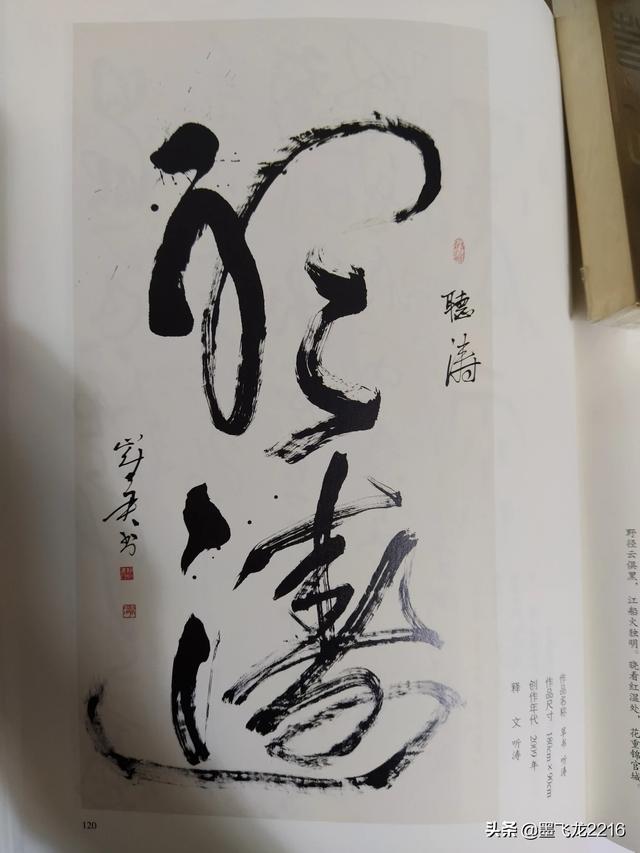 聽濤
聽涛
作品名称 草书 听涛
作品尺寸
创作年代 2009年
释 文 听涛
野径云俱黑，江船火独明。晓看红湿处，花重锦官城。
120
头条 @墨飞龙2216